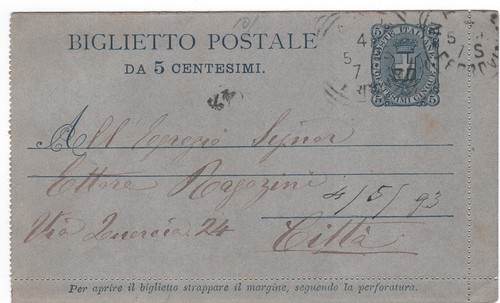 BIGLIETTO POSTALE
DA 5 CENTESIMI.
POSTE ITALIANE
CENTESIMI CINQUE
5 5
4
5
7
5
S
All' Egregio Signor
Ettore Ragozini
4/5/93
Via Quercia 24
Città
Per aprire il biglietto strappare il margine, seguendo la perforatura.